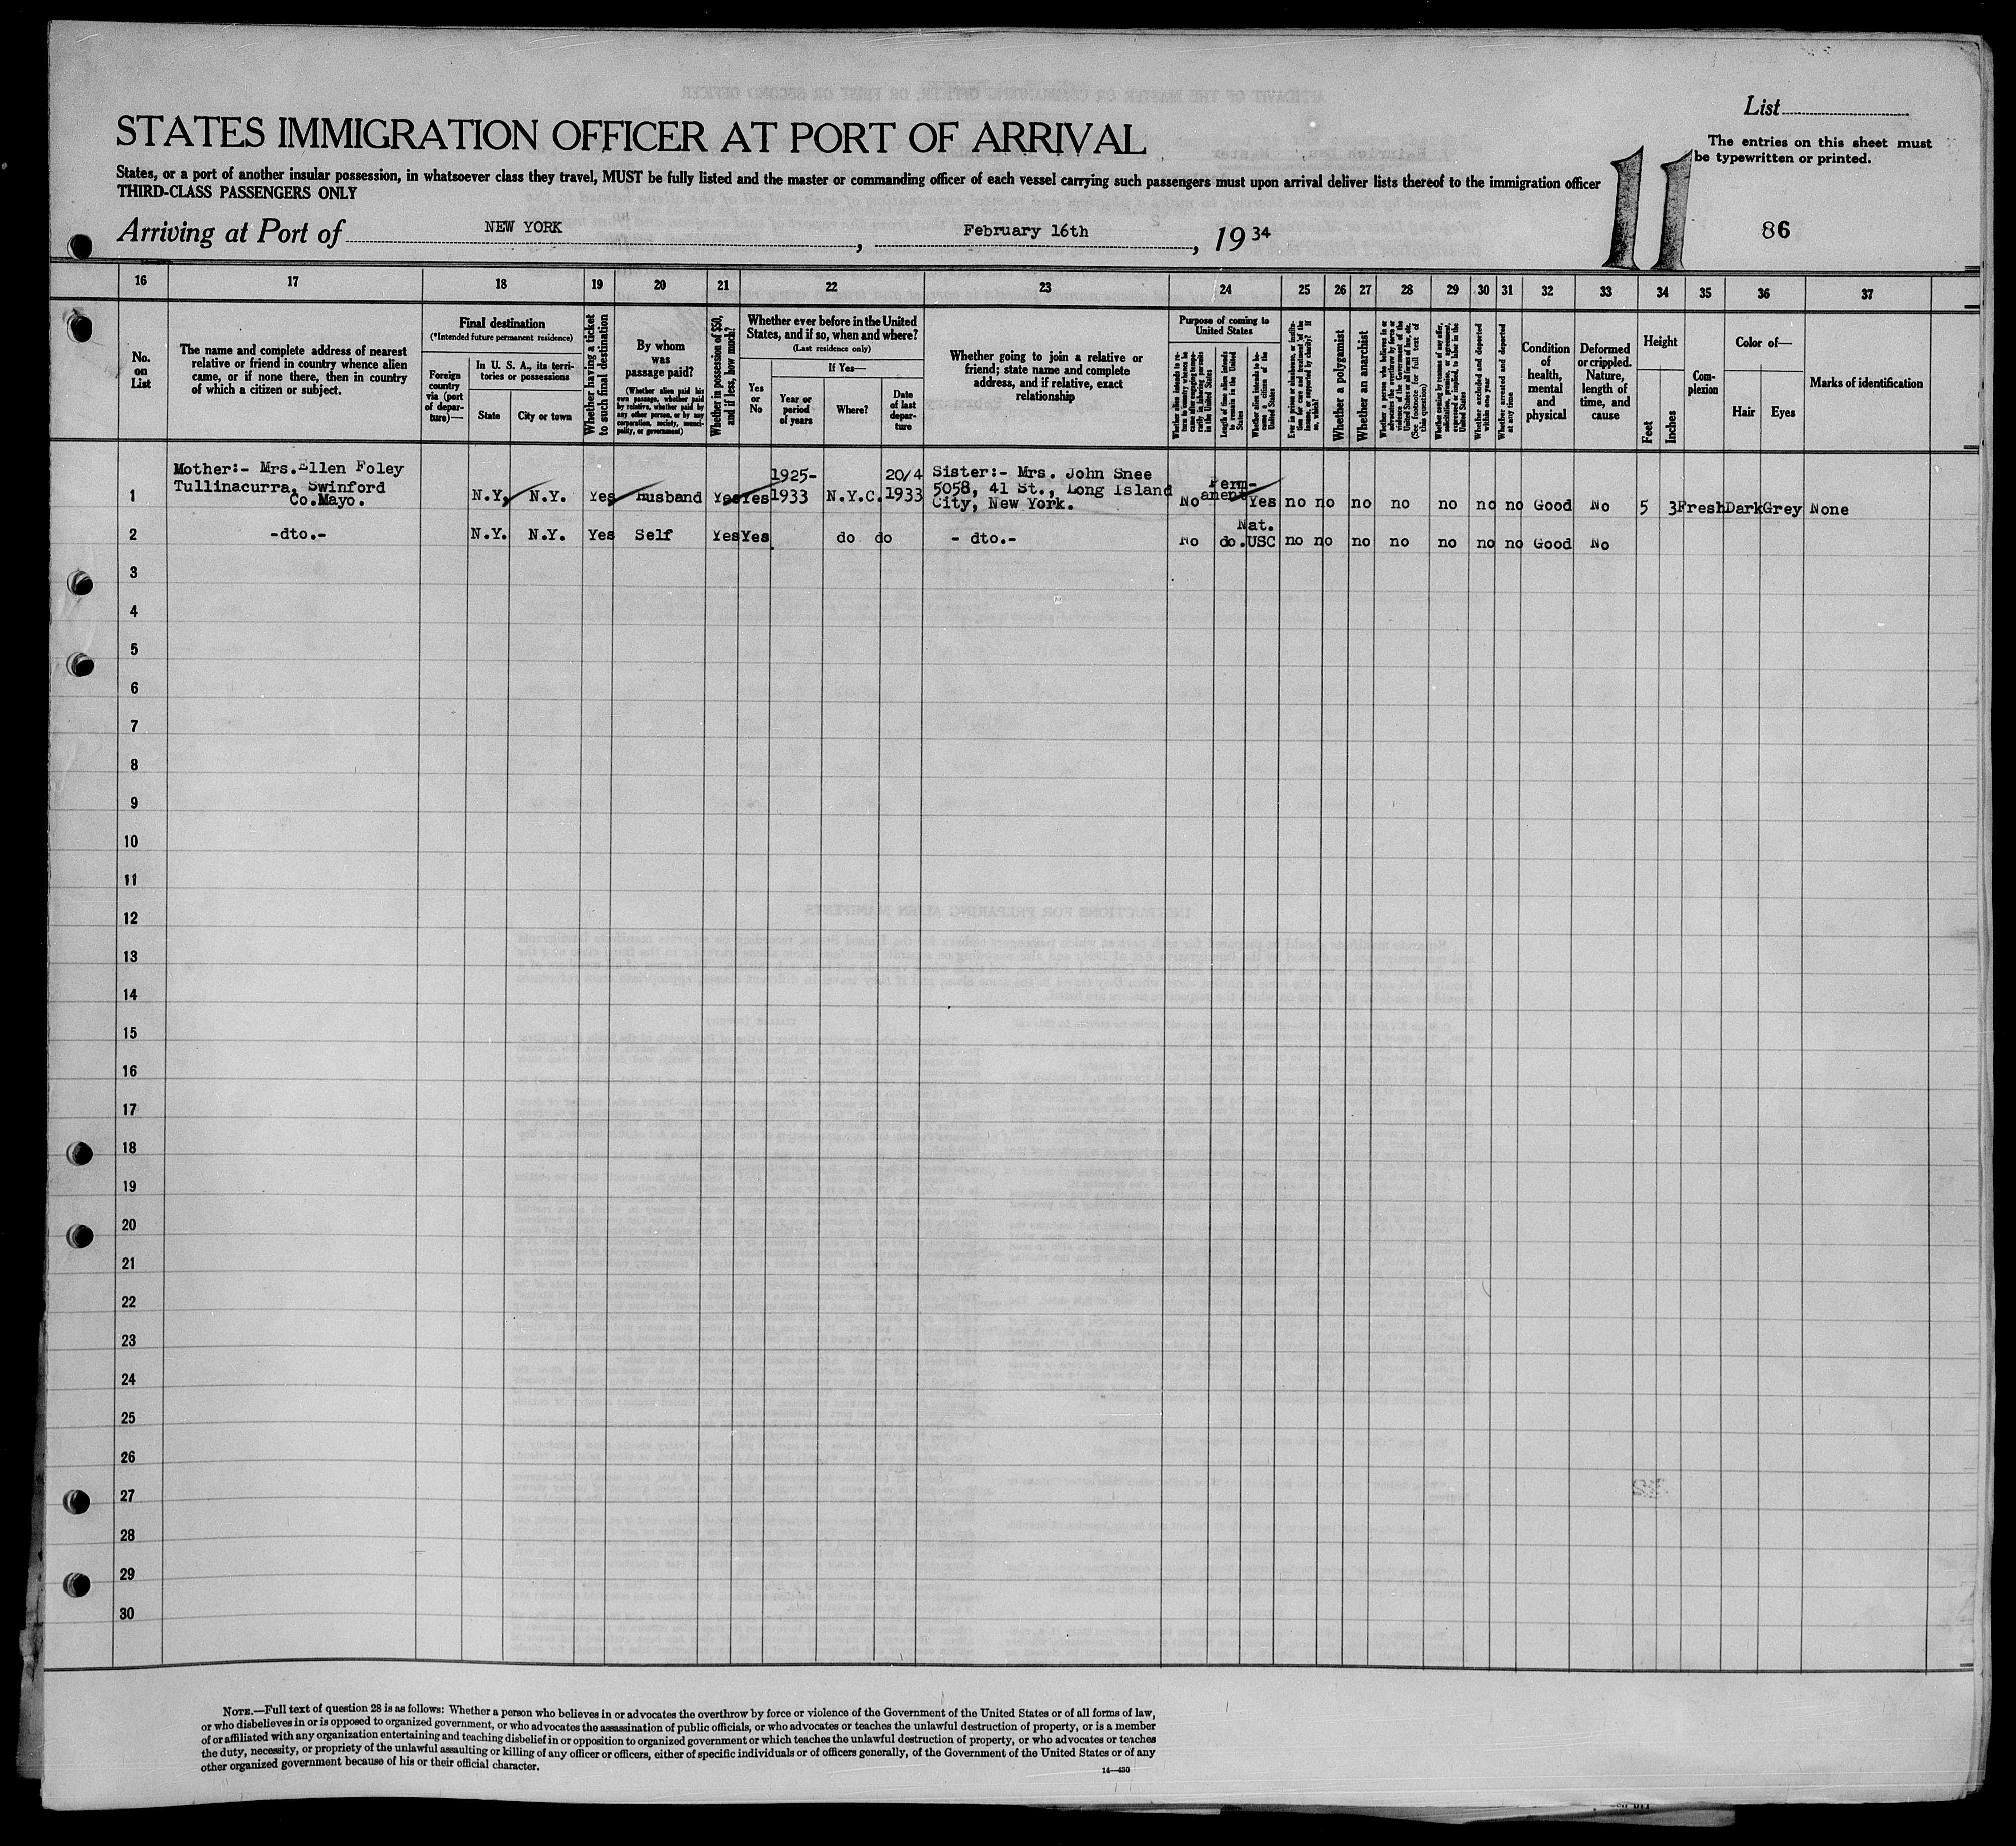 List
STATES IMMIGRATION OFFICER AT PORT OF ARRIVAL
The entries on this sheet must
be typewritten or printed.
States, or a port of another insular possession, in whatsoever class they travel, MUST be fully listed and the master or commanding officer of each vessel carrying such passengers must upon arrival deliver lists thereof to the immigration officer
THIRD-CLASS PASSENGERS ONLY
11
86
Arriving at Port of NEW YORK, February 16th, 1934
16 17 18 19 20 21 22 23 24 25 26 27 28 29 30 31 32 33 34 35 36 37
No.
on
List
The name and complete address of nearest
relative or friend in country whence alien
came, or if none there, then in country
of which a citizen or subject.
Final destination
(*Intended future permanent residence)
Foreign
country
via (port
of depar-
ture)—
In U. S. A., its terri-
tories or possessions
State
City or town
Whether having a ticket
to such final destination
By whom
was
passage paid?
(Whether alien paid his
own passage, whether paid
by relative, whether paid by
any other person, or by any
corporation, society, munici-
pality, or government)
Whether in possession of $50,
and if less, how much?
Whether ever before in the United
States, and if so, when and where?
(Last residence only)
Yes
or
No
If Yes—
Year or
period
of years
Where?
Date
of last
depar-
ture
Whether going to join a relative or
friend; state name and complete
address, and if relative, exact
relationship
Purpose of coming to
United States
Whether alien intends to re-
turn to country whence he
came after engaging tempo-
rarily in laboring pursuits
in the United States
Length of time alien intends
to remain in the United
States
Whether alien intends to be-
come a citizen of the
United States
Ever in prison or almshouse, or institu-
tion for care and treatment of the
insane, or supported by charity? If
so, which?
Whether a polygamist
Whether an anarchist
Whether a person who believes in or
advocates the overthrow by force or
violence of the Government of the
United States or all forms of law, etc.
(See footnote for full text of
this question)
Whether coming by reasons of any offer,
solicitation, promise, or agreement,
expressed or implied, to labor in the
United States
Whether excluded and deported
within one year
Whether arrested and deported
at any time
Condition
of
health,
mental
and
physical
Deformed
or crippled.
Nature,
length of
time, and
cause
Height
Feet
Inches
Com-
plexion
Color of—
Hair
Eyes
Marks of identification
1 Mother:- Mrs.Ellen Foley
Tullinacurra, Swinford
Co.Mayo.
N.Y. N.Y. Yes Husband Yes Yes
1925-
1933
N.Y.C.
20/4
1933
Sister:- Mrs. John Snee
5058, 41 St., Long Island
City, New York.
No
Perm-
anent
Yes no no no no no no no Good No 5 3 Fresh Dark Grey None
2 -dto.- N.Y. N.Y. Yes Self Yes Yes do do - dto.- No do.
Nat.
USC
no no no no no no no Good No
3
4
5
6
7
8
9
10
11
12
13
14
15
16
17
18
19
20
21
22
23
24
25
26
27
28
29
30
NOTE.—Full text of question 28 is as follows: Whether a person who believes in or advocates the overthrow by force or violence of the Government of the United States or of all forms of law,
or who disbelieves in or is opposed to organized government, or who advocates the assassination of public officials, or who advocates or teaches the unlawful destruction of property, or is a member
of or affiliated with any organization entertaining and teaching disbelief in or opposition to organized government or which teaches the unlawful destruction of property, or who advocates or teaches
the duty, necessity, or propriety of the unlawful assaulting or killing of any officer or officers, either of specific individuals or of officers generally, of the Government of the United States or of any
other organized government because of his or their official character.
14—430